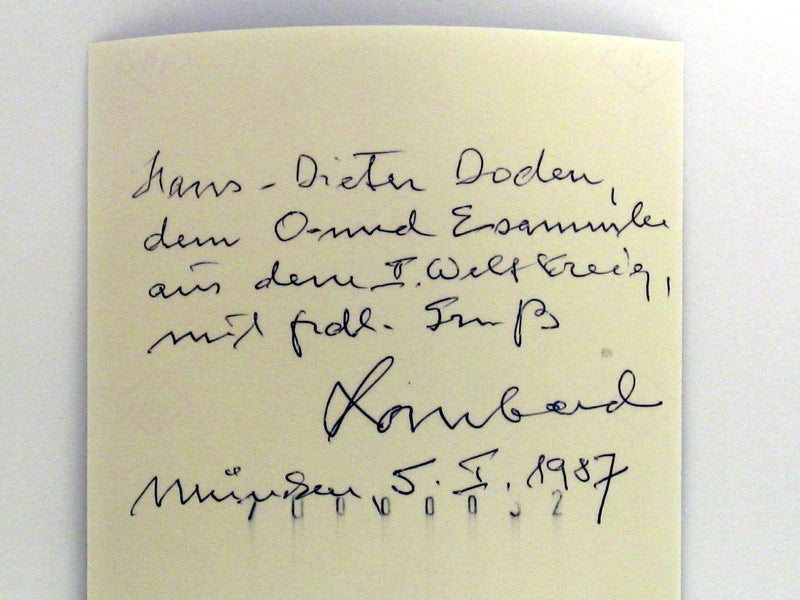 Hans-Dieter Doden,
dem O- und E sammler
aus dem II. Welt Kreig,
mit frdl. Gruß
Lombard
München, 5. I. 1987